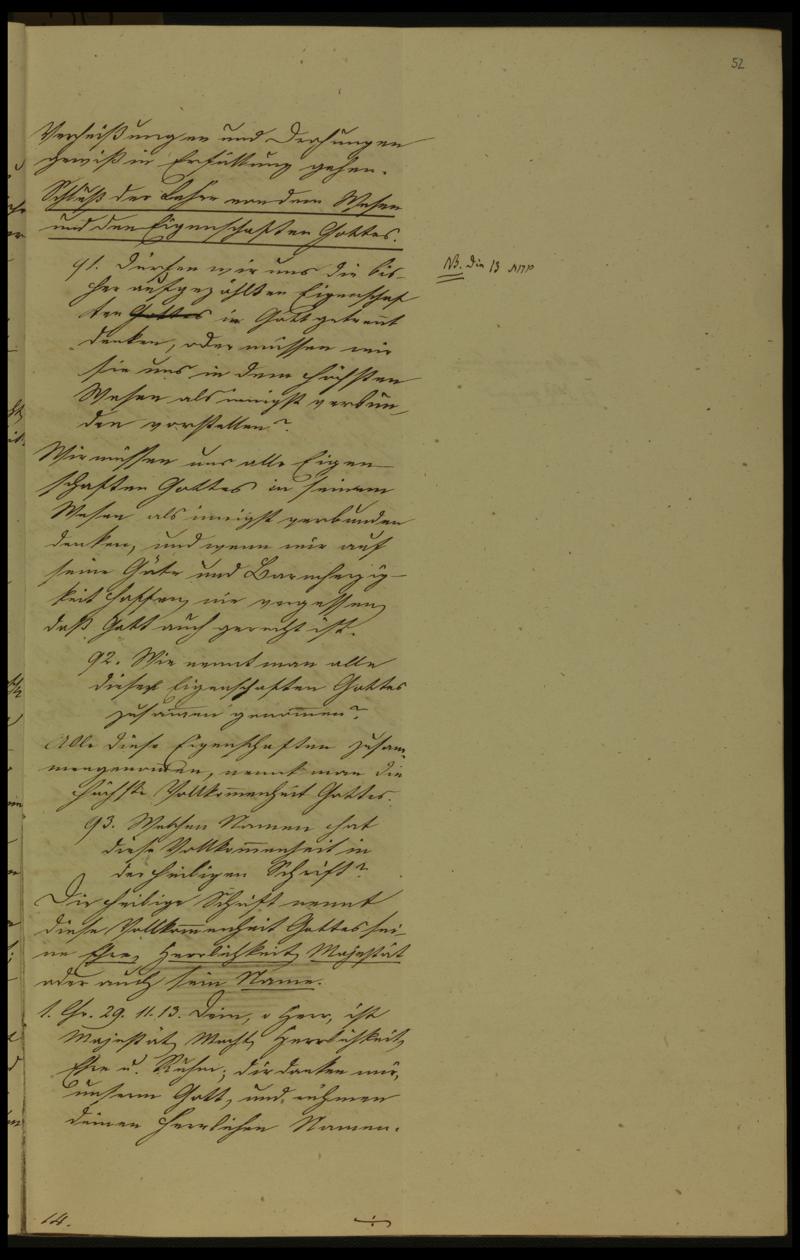 52
Verheißungen und Drohungen
gewiß in Erfüllung gehen.
Schluß der Lehre von dem Wesen
und den Eigenschaften Gottes.
91. Dürfen wir uns die bis-
her aufgezählten Eigenschaf
ten Gottes in Gott getrennt
denken, oder müssen wir
sie uns in dem höchsten
Wesen als innigst verbun-
den vorstellen?
NB. Die 13 מדות
Wir müssen uns alle Eigen-
schaften Gottes in seinem
Wesen als innigst verbunden
denken, und wenn wir auf
seine Güte und Barmherzig-
keit hoffen, nie vergessen,
daß Gott auch gerecht ist.
92. Wie nennt man alle
diese Eigenschaften Gottes
zusam̅en genom̅en?
Alle diese Eigenschaften zusam-
mengenom̅en, nennt man die
höchste Vollkom̅enheit Gottes.
93. Welchen Namen hat
diese Vollkom̅enheit in
der heiligen Schrift?
Die heilige Schrift nennt
diese Vollkom̅enheit Gottes sei-
ne Ehre, Herrlichkeit, Majestät
oder auch sein Name.
1. Chr. 29. 11. 13. Dein, o Herr, ist
Majestät, Macht, Herrlichkeit,
Ehre u. Ruhm; dir danken wir,
unserm Gott, und rühmen
deinen herrlichen Namen.
14.